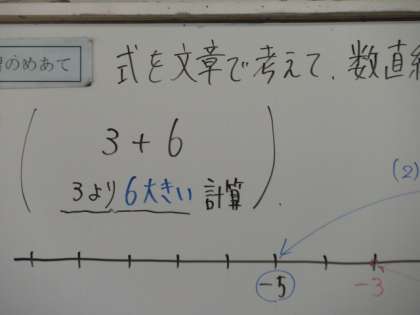 のめあて
式を文章で考えて、数直
3+6
3より6大きい 計算
(2)
-5 -3